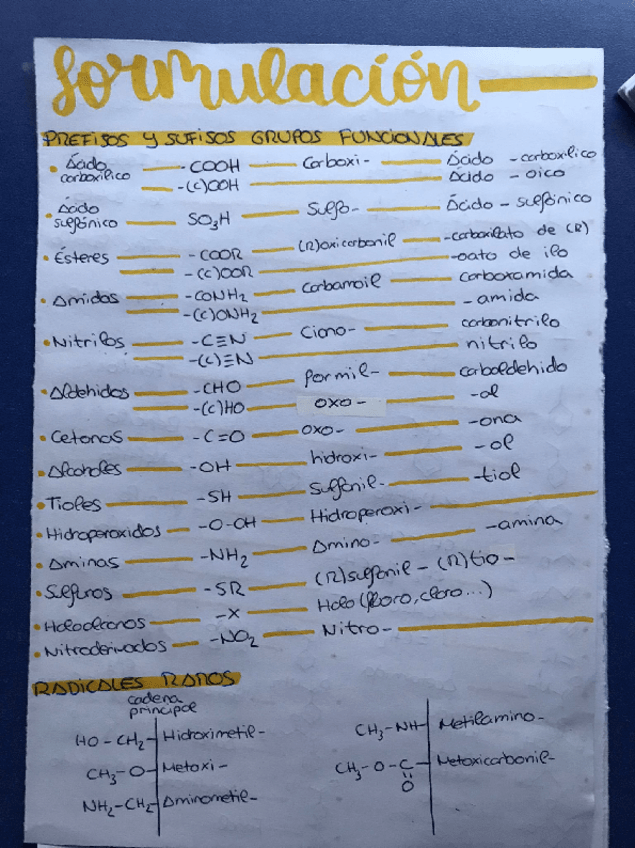 formulación
PREFIJOS Y SUFIJOS GRUPOS FUNCIONALES
• Ácido carboxílico -COOH Carboxi- Ácido -carboxílico
-(C)OOH Ácido -oico
• Ácido sulfónico SO₃H Sulfo- Ácido -sulfónico
• Ésteres -COOR (R)oxicarbonil -carboxilato de (R)
-(C)OOR -oato de ilo
• Amidas -CONH₂ Carbamoil carboxamida
-(C)ONH₂ -amida
• Nitrilos -C≡N Ciano- carbonitrilo
-(C)≡N nitrilo
• Aldehidos -CHO formil- carbaldehido
-(C)HO OXO- -al
• Cetonas -C=O OXO- -ona
• Alcoholes -OH hidroxi- -ol
• Tioles -SH Sulfenil- -tiol
• Hidroperoxidos -O-OH Hidroperoxi-
• Aminas -NH₂ Amino- -amina
• Sulfuros -SR (R)sulfenil- (R)tio-
• Haloalcanos -X Halo (fluoro, cloro...)
• Nitroderivados -NO₂ Nitro-
RADICALES RAROS
cadena
principal
HO-CH₂- Hidroximetil-
CH₃-O- Metoxi-
NH₂-CH₂- Aminometil-
CH₃-NH- Metilamino-
CH₃-O-C- Metoxicarbonil-
O